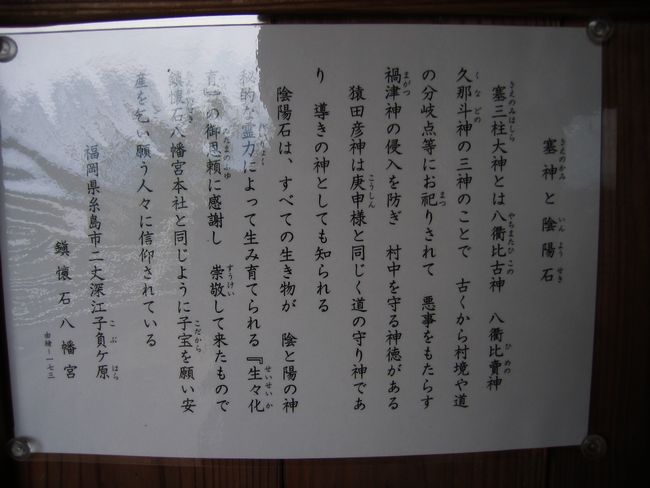 塞神と陰陽石
塞三柱大神とは八衢比古神　八衢比賣神
久那斗神の三神のことで　古くから村境や道
の分岐点等にお祀りされて　悪事をもたらす
禍津神の侵入を防ぎ　村中を守る神徳がある
猿田彦神は庚申様と同じく道の守り神であ
り　導きの神としても知られる
陰陽石は、すべての生き物が　陰と陽の神
秘的な霊力によって生み育てられる『生々化
育』の御恩頼に感謝し　崇敬して来たもので
鎮懐石八幡宮本社と同じように子宝を願い安
産を乞い願う人々に信仰されている
福岡県糸島市二丈深江子負ケ原
鎮懐石八幡宮